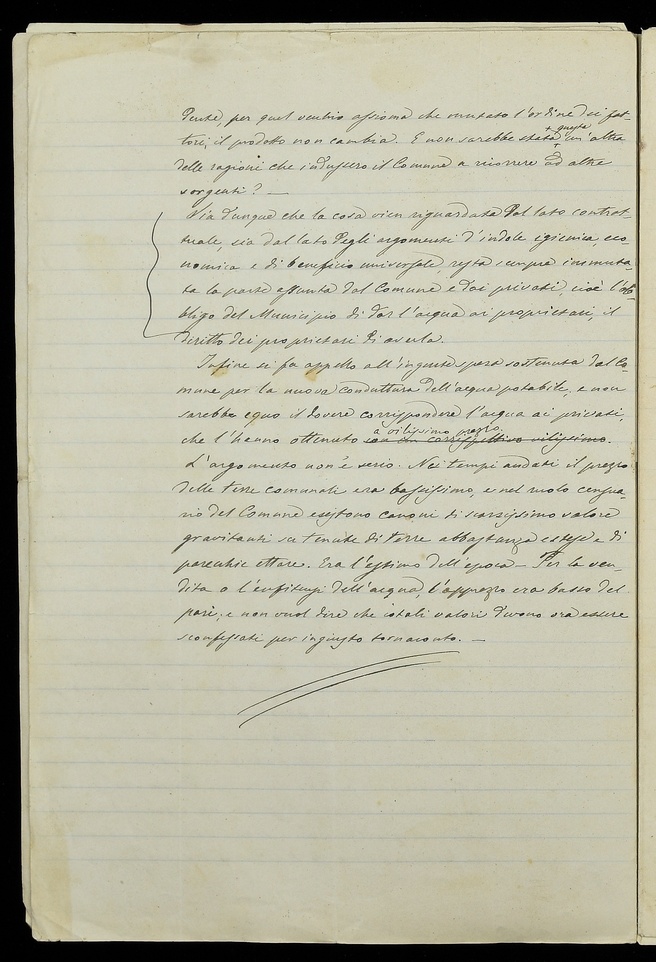 dente, per quel vecchio assioma che mutato l'ordine dei fat-
tori, il prodotto non cambia. E non sarebbe stata + questa un'altra
delle ragioni che indussero il Comune a ricorrere ad altre
sorgenti? —
Sia dunque che la cosa vien riguardata dal lato contrat-
tuale, sia dal lato degli argomenti d'indole igienica, eco
nomica e di beneficio universale, resta sempre immuta-
ta la parte assunta dal Comune e dai privati, cioè l'ob-
bligo del Municipio di dar l'acqua ai proprietari, il
diritto dei proprietari di averla.
Infine si fa appello all'ingente spesa sostenuta dal Co-
mune per la nuova conduttura dell'acqua potabile, e non
sarebbe equo il dovere corrispondere l'acqua ai privati,
che l'hanno ottenuto a vilissimo prezzo. con un corrispettivo vilissimo.
L'argomento non è serio. Nei tempi andati il prezzo
delle terre comunali era bassissimo, e nel ruolo censua-
rio del Comune esistono canoni di scarsissimo valore
gravitanti su tenute di terre abbastanza estese e di
parecchie ettare. Era l'estimo dell'epoca — Per la ven-
dita o l'enfiteusi dell'acqua, l'apprezzo era basso del
pari; e non vuol dire che cotali valori devono ora essere
sconfessati per ingiusto tornaconto. —